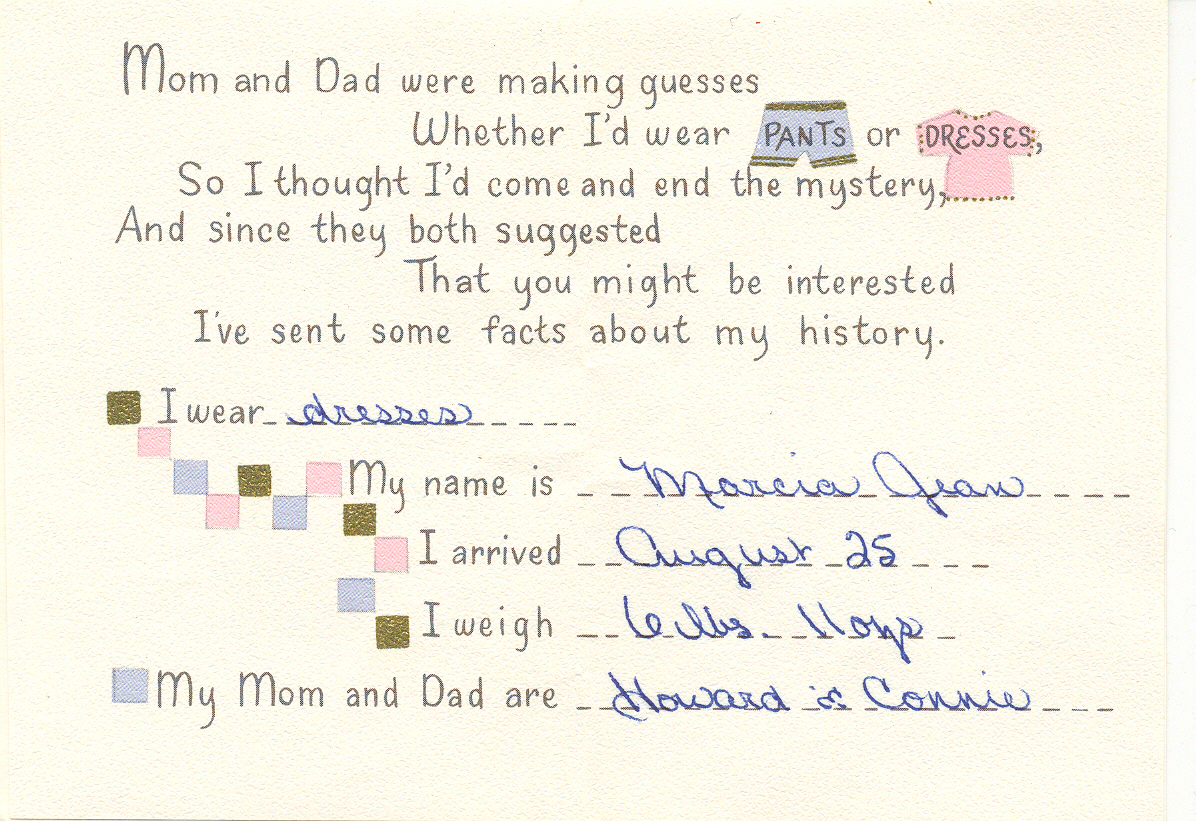 Mom and Dad were making guesses
Whether I'd wear PANTS or DRESSES,
So I thought I'd come and end the mystery,
And since they both suggested
That you might be interested
I've sent some facts about my history.
I wear dresses
My name is Marcia Jean
I arrived August 25
I weigh 6 lbs. 11 ozs
My Mom and Dad are Howard & Connie